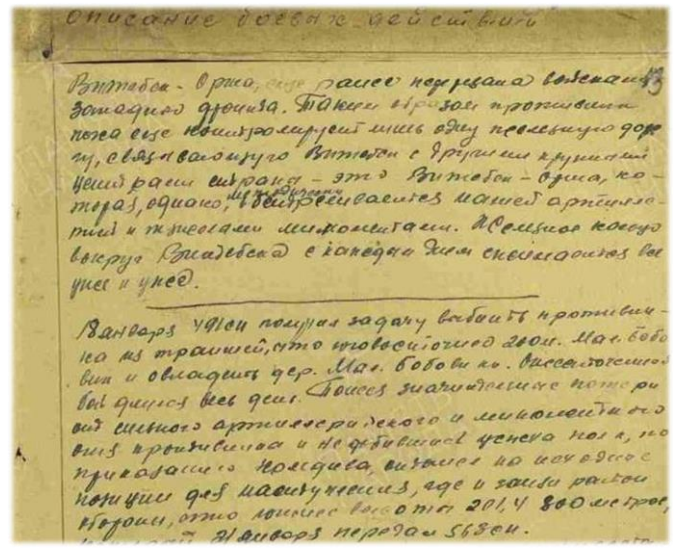 описание боевых действий
Витебск - Орша, еще ранее перерезана войсками
западного фронта. Таким образом противник
пока еще контролирует лишь одну железную доро
гу, связывающую Витебск с другими крупными
центрами страны - это Витебск - Орша, ко-
торая, однако, методически обстреливается нашей артилле-
рией и тяжелыми минометами. Железное кольцо
вокруг Витебска с каждым днем сжимается все
уже и уже.
18 января 491 сп получил задачу выбить противни-
ка из траншей, что юго-восточнее 200 м. Мал. Бобо
вики и овладеть дер. Мал. Бобовики. Ожесточенный
бой длился весь день. Понеся значительные потери
от сильного артиллерийского и минометного
огня противника и не добившись успеха полк, по
приказанию Комдива, отошел на исходные
позиции для наступления, где и занял район
обороны, что южнее высоты 201,4 800 метров,
21 января передал 563 сп.